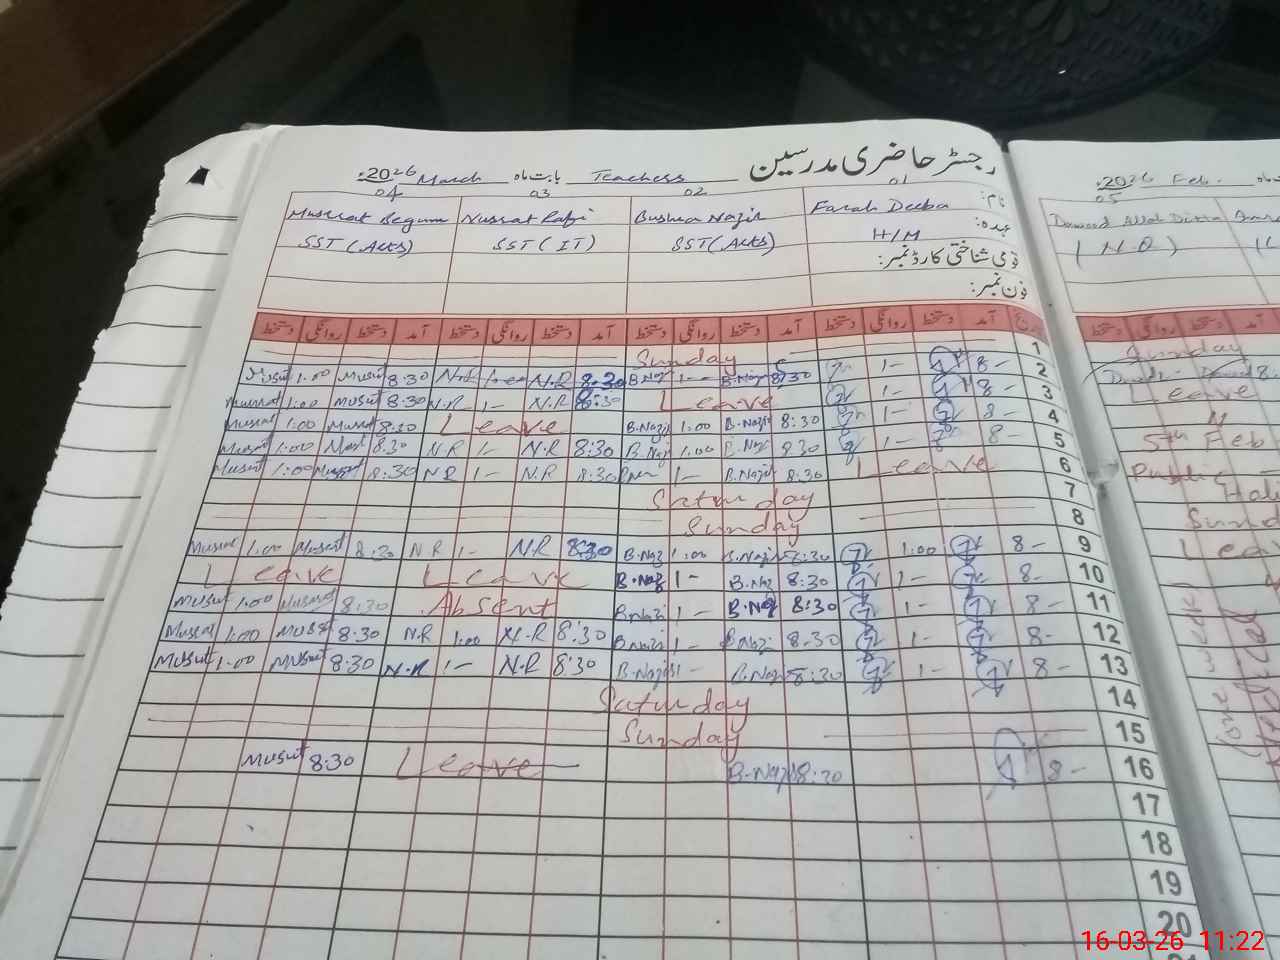 رجسٹر حاضری مدرسین
Teachers بابت ماہ March 2026
نام: 01 Farah Deeba 02 Bushra Nazir 03 Nussrat Rafi 04 Mussrat Begum
عہدہ: H/M SST (Arts) SST (IT) SST (Arts)
قومی شناختی کارڈ نمبر:
فون نمبر:
آمد دستخط روانگی دستخط آمد دستخط روانگی دستخط آمد دستخط روانگی دستخط آمد دستخط روانگی دستخط
1 Sunday
2 8- 1- 8:30 B.Nazi 1- B.Naz 8:30 N.R N.R 8:30 Musrat 1:00
3 8- 1- Leave 8:30 N.R 1- N.R 8:30 Musrat 1:00 Mussrat
4 8- 1- 8:30 B.Nazir 1:00 B.Nazir Leave 8:30 1:00 Musrat
5 8- 1- 8:30 B.Naz 1:00 B.Naz 8:30 N.R 1- N.R 8:30 1:00 Musrat
6 Leave 8:30 B.Nazir 1- 8:30 N.R 1- N.R 8:30 Mussrat 1:00 Musrat
7 Saturday
8 Sunday
9 8- 1:00 8:30 B.Nazir 1:00 B.Naz 8:30 N.R 1- N.R 8:30 Musrat 1:00 Musrat
10 8- 1- 8:30 B.Naz 1- B.Naz Leave Leave
11 8- 1- 8:30 B.Naz 1- B.Nazi Absent 8:30 Musrat 1:00 Musrat
12 8- 1- 8:30 B.Nazi 1- B.Nazi 8:30 N.R 1:00 N.R 8:30 Musrat 1:00 Mussrat
13 8- 1- 8:30 B.Naz 1- B.Nazir 8:30 N.R 1- N.R 8:30 Musrat 1:00 Musrat
14 Saturday
15 Sunday
16 8- 8:30 B.Nazi Leave 8:30 Musrat
17
18
19
20
2026 Feb.
05
Dawood Allah Ditta
(N.Q)
روانگی دستخط
Sunday
Leave
5th Feb
Public
Sund
Leave
16-03-26 11:22